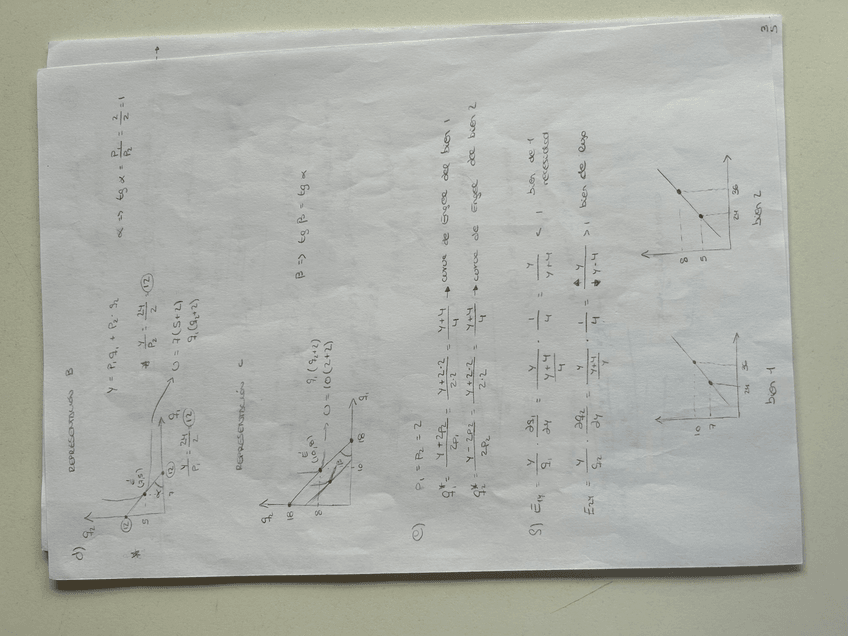 d) REPRESENTACIÓN B
q₂
Y = P₁q₁ + P₂·q₂
α => tg α = P₁/P₂ = 2/2 = 1
* 12
* Y/P₂ = 24/2 = 12
E (7,5)
5
α
7
12
q₁
U = 7(5+2)
q₁(q₂+2)
Y/P₁ = 24/2 = 12
REPRESENTACIÓN C
q₂
18
8
E' (10,8)
β
10
18
q₁
q₁(q₂+2)
→ U = 10(8+2)
β => tg β = tg α
e) P₁ = P₂ = 2
q₁* = Y+2P₂/2P₁ = Y+2·2/2·2 = Y+4/4 → curva de Engel del bien 1
q₂* = Y-2P2/2P₂ = Y+2·2/2·2 = Y+4/4 → curva de Engel del bien 2
f) E1Y = Y/q₁ · ∂q₁/∂Y = Y/(Y+4/4) · 1/4 = Y/Y+4 < 1 bien de 1 necesidad
E2Y = Y/q₂ · ∂q₂/∂Y = Y/(Y+4/Y) · 1/4 = Y/Y-4 > 1 bien de lujo
10
7
24
36
bien 1
8
5
24
36
bien 2
3/5